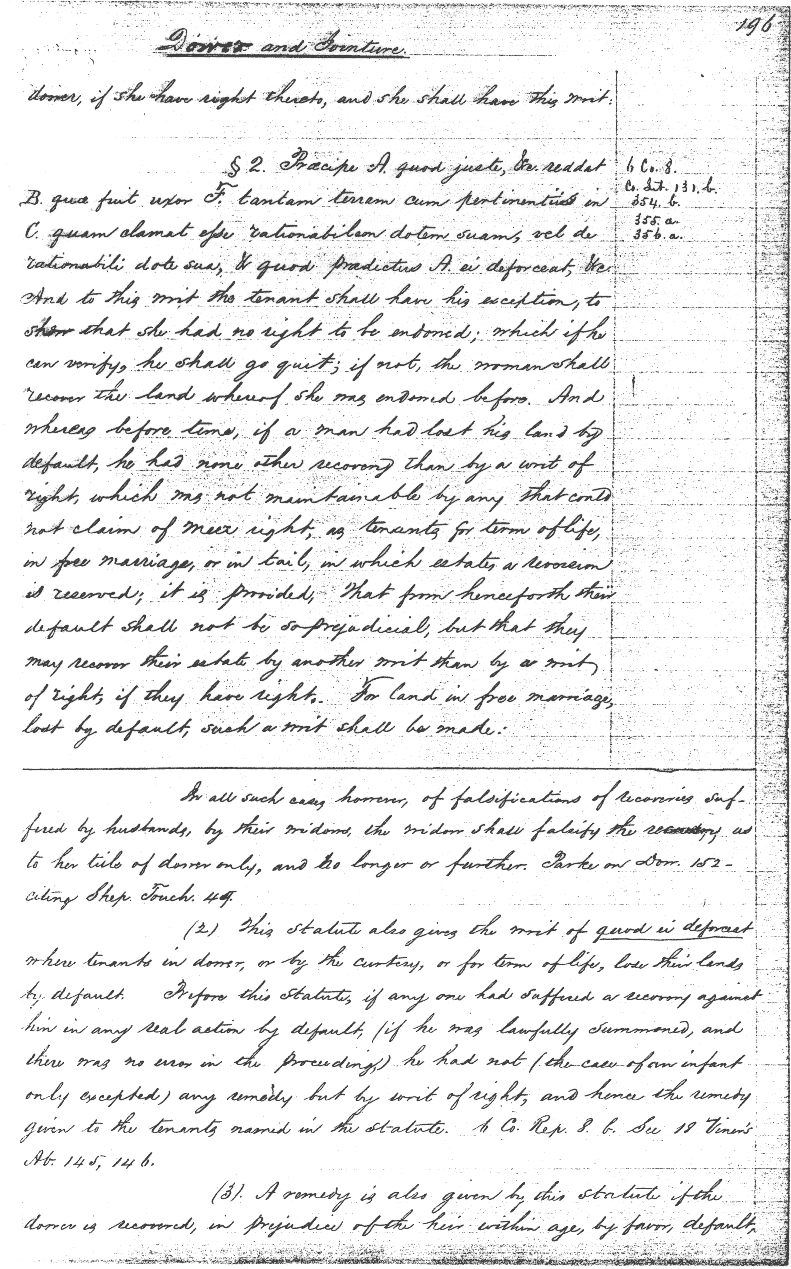 196
Dower and Jointure.
dower, if she have right thereto, and she shall have this writ:
§ 2. Præcipe A. quod juste, &c. reddat
B. quæ fuit uxor F. tantam terram cum pertinentiis in
C. quam clamat esse rationabilem dotem suam, vel de
rationabili dote sua, & quod prædictus A. ei deforceat, &c.
And to this writ the tenant shall have his exception, to
show that she had no right to be endowed; which if he
can verify, he shall go quit; if not, the woman shall
recover the land whereof she was endowed before. And
whereas before time, if a man had lost his land by
default, he had none other recovery than by a writ of
right, which was not maintainable by any that could
not claim of meer right, as tenants for term of life,
in free marriage, or in tail, in which estates a reversion
is reserved; it is provided, That from henceforth their
default shall not be so prejudicial, but that they
may recover their estate by another writ than by a writ
of right, if they have right. For land in free marriage,
lost by default, such a writ shall be made:
6 Co. 8.
Co. Lit. 131. b.
354. b.
355. a.
356. a.
In all such cases however, of falsifications of recoveries suf-
fered by husbands, by their widows, the widow shall falsify the recovery as
to her title of dower only, and no longer or further. Parke on Dow. 152-
citing Shep. Touch. 49.
(2) This statute also gives the writ of quod ei deforceat
where tenants in dower, or by the curtesy, or for term of life, lose their lands
by default. Before this statute, if any one had suffered a recovery against
him in any real action by default, (if he was lawfully summoned, and
there was no error in the proceeding) he had not (the case of an infant
only excepted) any remedy but by writ of right, and hence the remedy
given to the tenants named in the statute. 6 Co. Rep. 8. b. See 18 Viner's
Ab. 145, 146.
(3). A remedy is also given by this statute if the
dower is recovered, in prejudice of the heir within age, by favor, default,